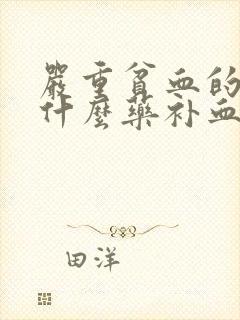 嚴重貧血的
什麼藥补血
田洋